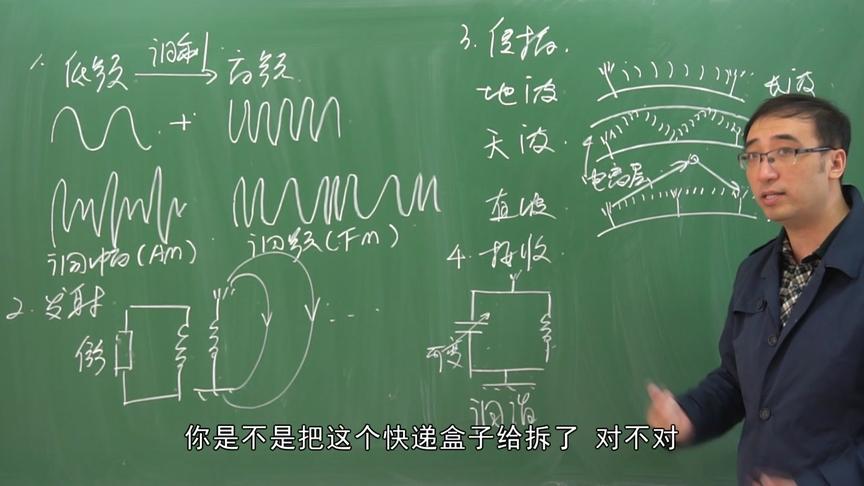 1. 低频 调制 高频
+
调幅(Am) 调频(Fm)
2. 发射
信号
...
3. 传播.
地波 长波
天波.
电离层
直波
4. 接收.
可变
调谐
你是不是把这个快递盒子给拆了 对不对